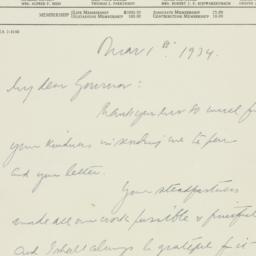 MRS. ALFRED F. HESS THOMAS I. PARKINSON MRS. ROBERT J. F. SCHWARZENBACH
MEMBERSHIP LIFE MEMBERSHIP $1000.00 ASSOCIATE MEMBERSHIP
SUSTAINING MEMBERSHIP 100.00 CONTRIBUTING MEMBERSHIP 10.00
March 1st. 1934.
My dear Governor:
Thank you ever so much for
your kindness in sending me the pen
and your letter.
Your steadfastness
made all our work possible & fruitful
and I shall always be grateful for it